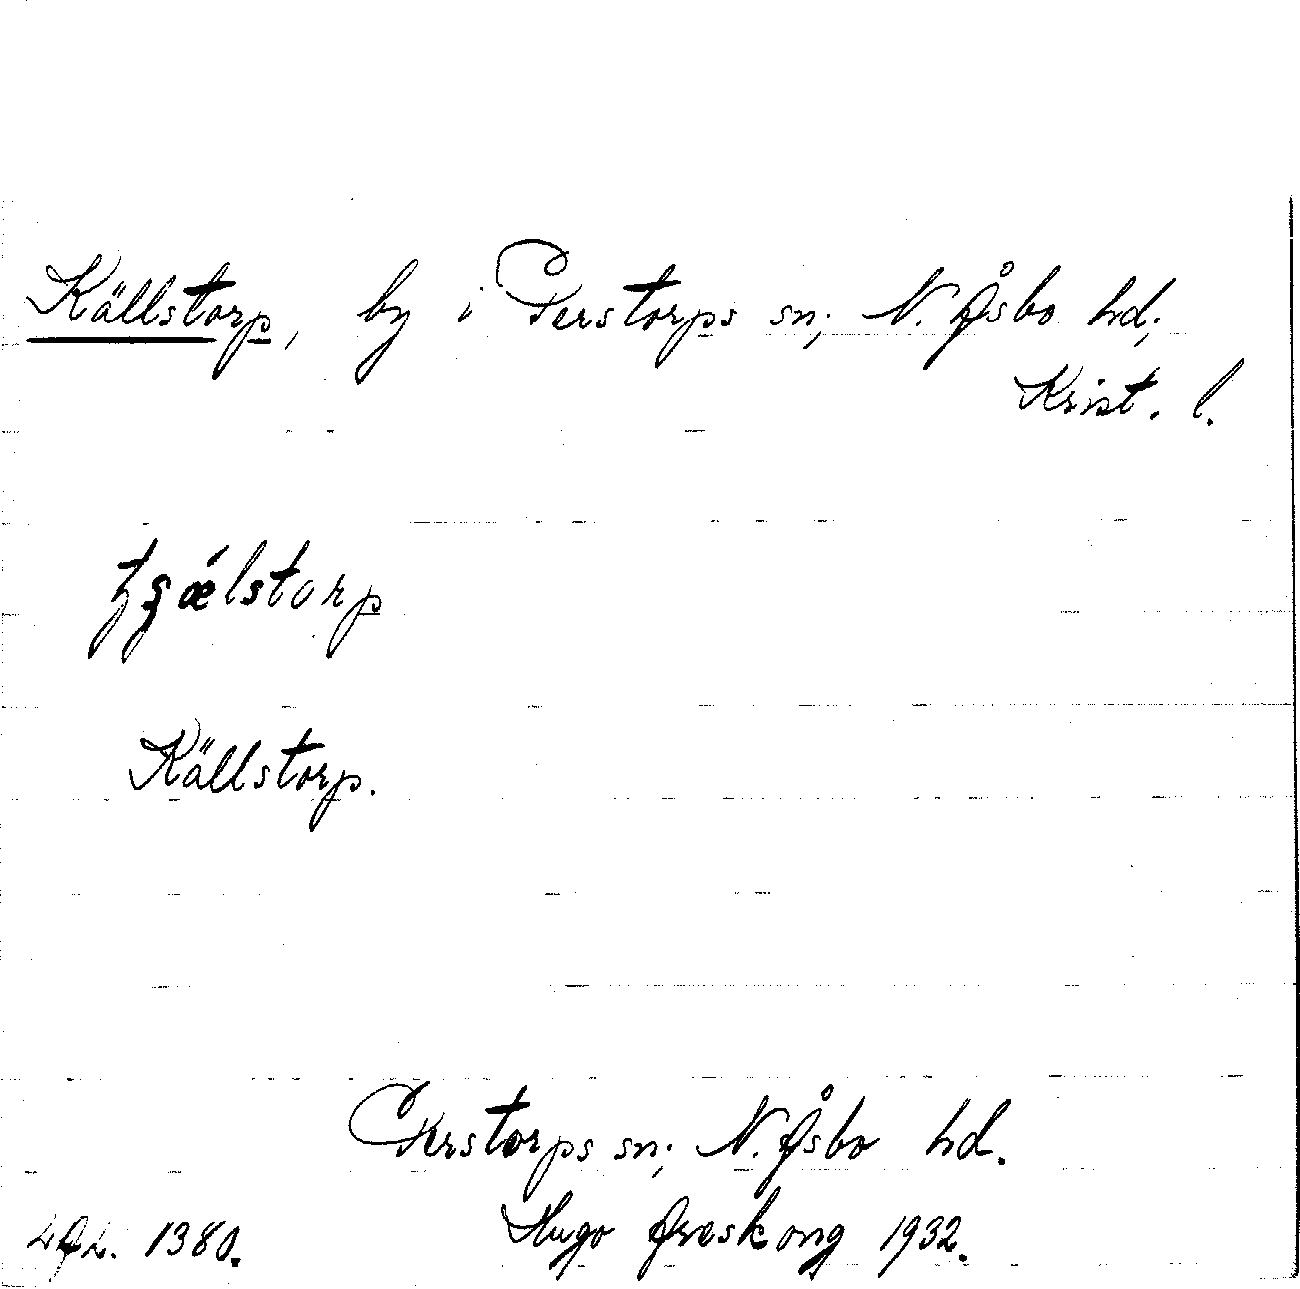 Källstorp, by i Perstorps sn; N. Åsbo hd;
Krist. l.
Källstorp.
Perstorps sn; N. Åsbo hd.
Hugo Areskoug 1932.
1380.